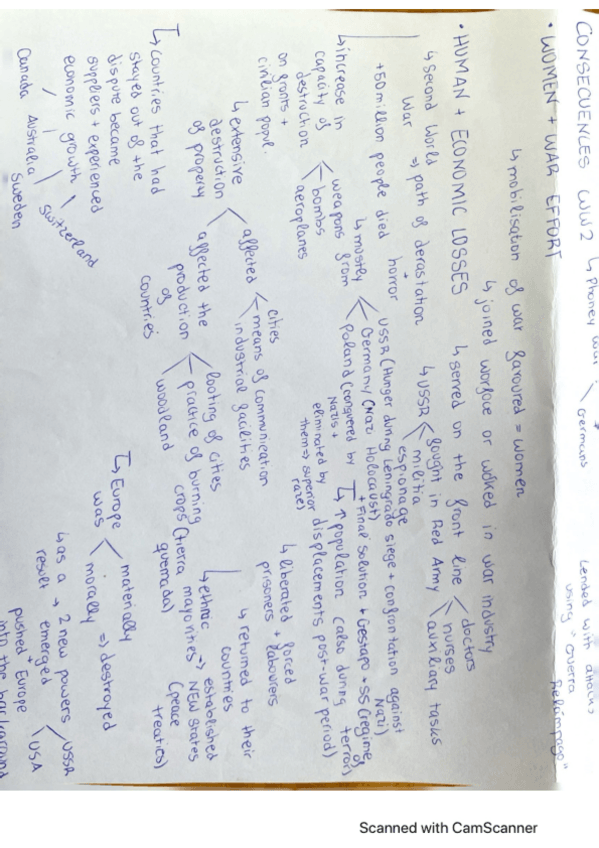 CONSECUENCES WW2
↳ Phoney war
Germans
ended with attacks
using "Guerra
Relámpago"
• WOMEN + WAR EFFORT
↳ mobilisation of war favoured = women
↳ joined warfare or worked in war industry
↳ served on the front line < doctors
nurses
auxiliary tasks
↳ USSR < fought in Red Army
militia
espionage
• HUMAN + ECONOMIC LOSSES
↳ Second World War => path of devastation + horror
+50 million people died
↳ mostly < USSR (Hunger during Leningrado siege + confrontation against Nazi)
Germany (Nazi Holocaust)
+ Final Solution + Gestapo + SS (regime of terror)
Poland (conquered by Nazis + eliminated by them => superior raze)
↳ ↑ population (also during displacements post-war period)
↳ liberated forced prisoners + labourers
↳ returned to their countries
↳ ethnic majorities => NEW States established (peace treaties)
↳ increase in capacity of destruction on fronts + civilian popul.
weapons from < bombs
aeroplanes
↳ extensive destruction of propery
affected < cities
means of communication
industrial facilities
affected the production of countries < looting of cities
practice of burning crops (tierra quemada)
woodland
↳ countries that had stayed out of the dispute became suppliers + experienced economic growth
Canada
Australia
Sweden
Switzerland
↳ Europe was < materially
morally => destroyed
↳ as a result → 2 new powers emerged < USSR
USA
+ pushed Europe into the background
Scanned with CamScanner